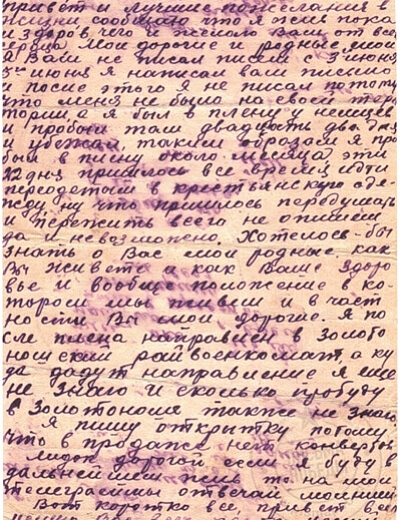 привет и лучшие пожелания в
жизни сообщаю что я жив пока
и здоров, чего и желаю Вам от все
сердца. Мои дорогие и родные мои
я Вам не писал писем с 3 июня
3го июня я написал вам письмо
и после этого я не писал потому
что меня не было на своей терр
тории, а я был в плену у немцев
и пробыл там двадцать два дня
и убежал, таким образом я про
был в плену около месяца эти
22 дня пришлось все время идти
переодетым в крестьянскую оде
жду ну что пришлось передумать
и пережить всего не опишеш
да и невозможно. Хотелось-бы
знать о Вас мои родные как
Вы живете и как Ваше здоро
вье и вообще положение в ко-
тором мы живем и в част
ности Вы мои дорогие. Я по
сле плена направлен в Золото
ношский райвоенкомат, а ку
да дадут направление я еще
не знаю и сколько пробуду
в Золотоноше также не знаю.
Я пишу открытку потому,
что в продаже нет конвертов
дорогой если я буду в
дальнейшем на мои
телеграммы отвечай молнией
Вот коротко все, привет